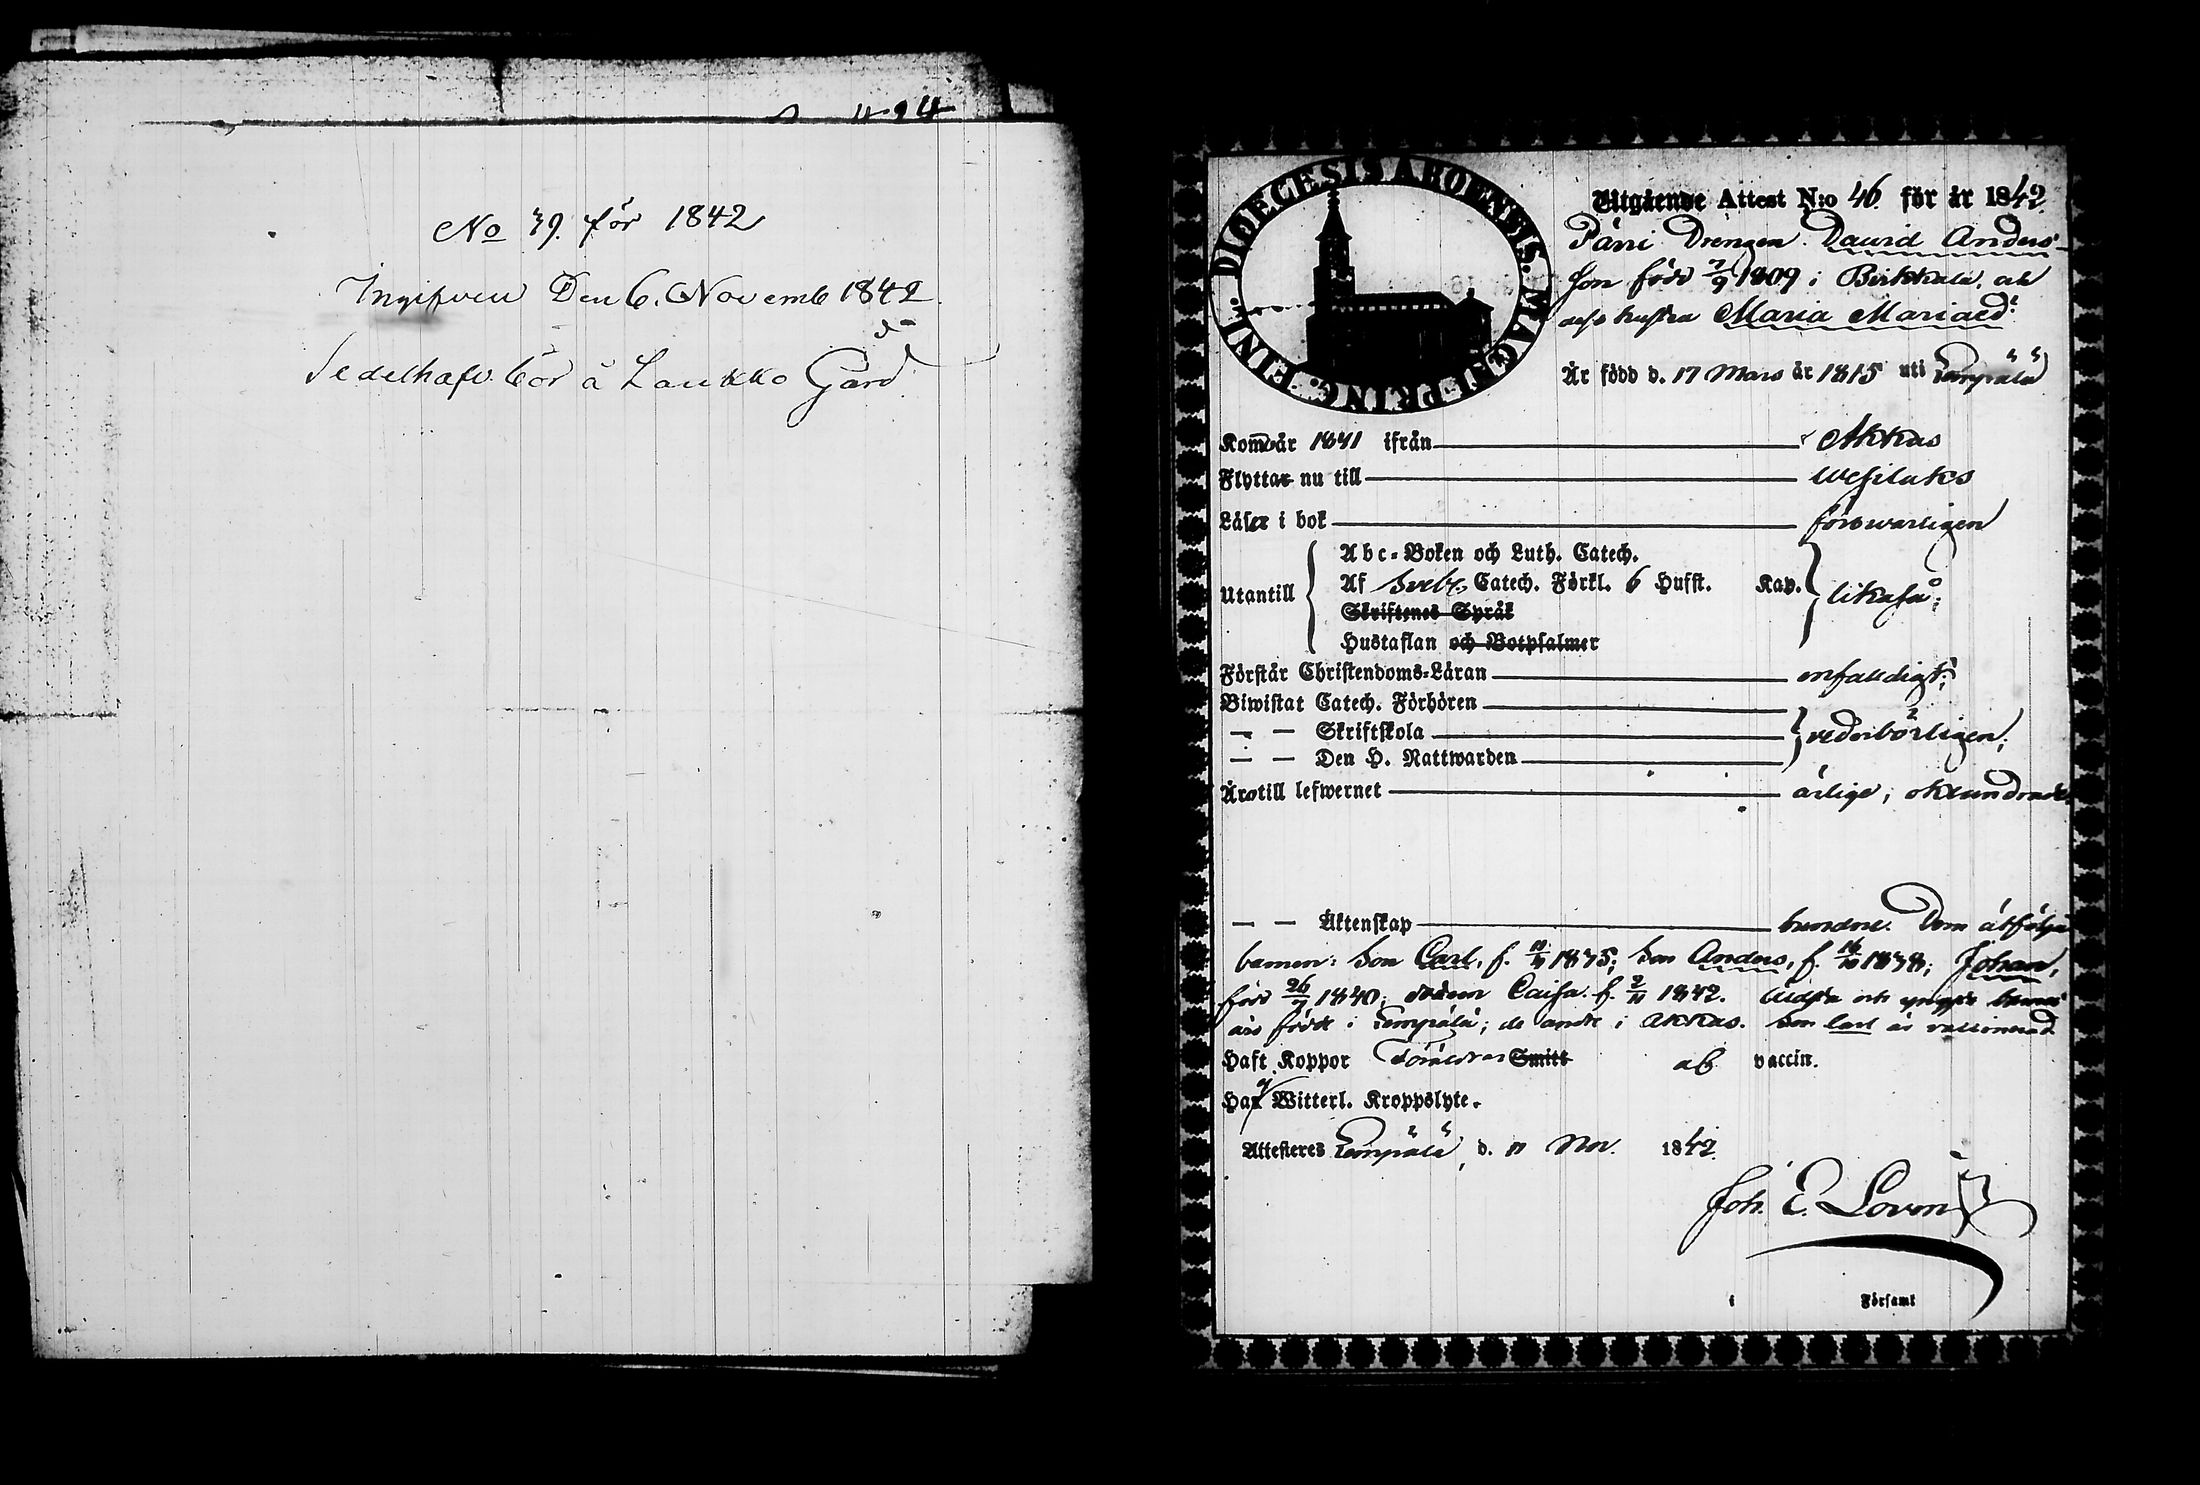 494
No 39. för 1842
Ingifven Den 6. Novemb 1842
Sedelhafv. bor å Laukko Gård
DIOECESIS ABOENSIS. MAGNI PRINC. FINL.
Utgående Attest N:o 46. för år 1842.
Pärri Drengen Dawid Anders-
son född 7/9 1809 i Birkkala, och
dess hustru Maria Mariaed:r
Är född d. 17 Mars år 1815 uti Lempälä
Kom år 1841 ifrån Akkas
Flyttar nu till Wesilaks
Läser i bok förswarligen
Utantill
Abc-Boken och Luth. Catech.
Af Sveb. Catech. Förkl. 6 Hufst. Kap. likaså;
Skriftenes Språk
Hustaflan och Botpsalmer
Förstår Christendoms-Läran enfaldigt;
Biwistat Catech. Förhören
— — Skriftskola wederbörligen;
— — Den H. Nattwarden
Äro till lefwernet ärlige; oklandrade.
— — Äktenskap bundne. Dem åtfölja
barnen: Son Carl, f. 1835; Son Anders, f. 1838; Johan,
född 26/7 1840; Caisa f. 2/11 1842. äldsta och yngsta barnet
äro födde i Lempälä; de andre i Akkas. Son Carl är vaccinerad
Haft Koppor Föräldrar Smitt ab vaccin.
Har Witterl. Kroppslyte.
Attesteres Lempälä, d. 11 Nov. 1842.
Joh. E. Loven
i Församl